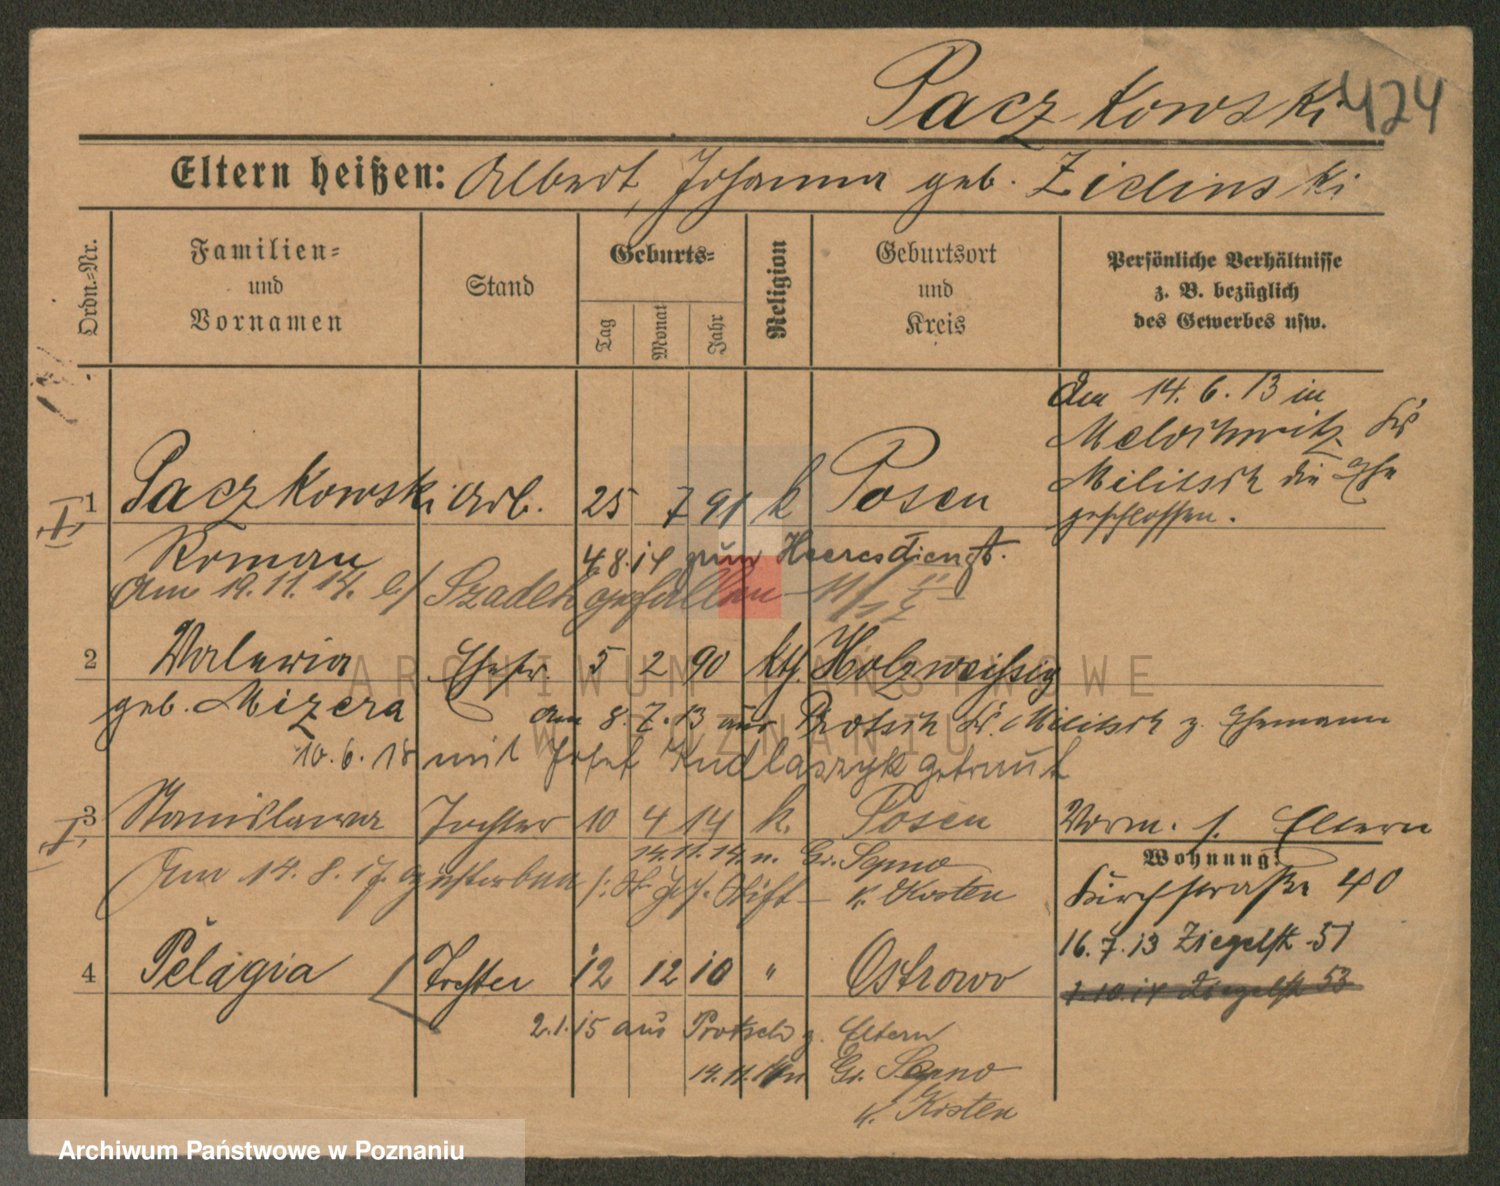 Paczkowski 424
Eltern heißen: Albert, Johanna geb. Zielinski
Ordn.-Nr.
Familien-
und
Vornamen
Stand
Geburts-
Tag
Monat
Jahr
Religion
Geburtsort
und
Kreis
Persönliche Verhältnisse
z. B. bezüglich
des Gewerbes usw.
Am 14. 6. 13 in
Melochwitz Kr.
Militsch die Ehe
geschlossen.
1 Paczkowski Arb. 25 7 91 k Posen
Roman 4.8.14 zum Heeresdienst.
Am 19. 11. 14. b/ Szadek gefallen
2 Valeria Ehefr. 5 2 90 kth. Holzweissig
geb. Mizera am 8. 7. 13 aus Protsch Kr. Militsch z. Ehemann
10. 6. 18 mit Josef Kudlaszyk getraut
3 Stanislawa Tochter 10 4 14 k. Posen
Vorm. s. Eltern
14.11.14 n. Gr. Sepno
Am 14. 8. 17. gestorben Stift
K. Kosten
Wohnung:
Kirchstraße 40
16. 7. 13 Ziegelstr. 51
1.10.14 Ziegelstr. 53
4 Pelagia Tochter 12 12 10 " Ostrowo
2.1.15 aus Protsch z. Eltern
14.11.14 n Gr. Sepno
K. Kosten
ARCHIWUM PAŃSTWOWE
W POZNANIU
Archiwum Państwowe w Poznaniu